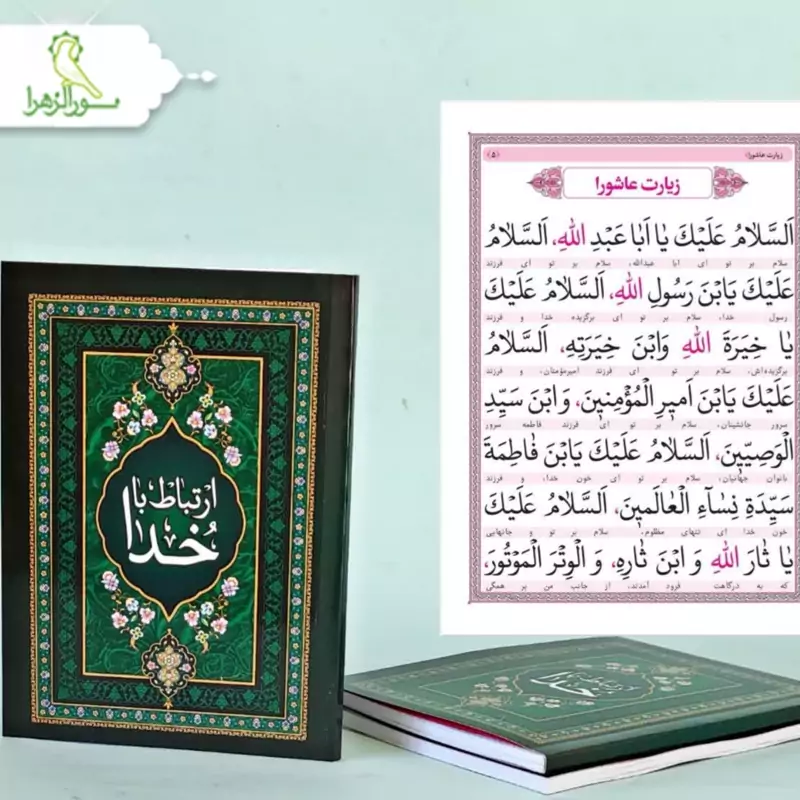 سورالزهرا
زیارت عاشورا
﴿۵﴾
زیارت عاشورا
اَلسَّلامُ عَلَیْكَ یٰا اَبٰا عَبْدِ اللهِ، اَلسَّلامُ
سلام بر تو ای ابا عبدالله، سلام بر تو ای فرزند
عَلَیْكَ یَابْنَ رَسُولِ اللهِ، اَلسَّلامُ عَلَیْكَ
رسول خدا، سلام بر تو ای برگزیده خدا و فرزند
یٰا خِیَرَةَ اللهِ وَابْنَ خِیَرَتِهِ، اَلسَّلامُ
برگزیده‌اش، سلام بر تو ای فرزند امیرمؤمنان، و فرزند
عَلَیْكَ یَابْنَ اَمیرِ الْمُؤْمِنینَ، وَ ابْنَ سَیِّدِ
سرور جانشینان، سلام بر تو ای فرزند فاطمه سرور
الْوَصِیّینَ، اَلسَّلامُ عَلَیْكَ یَابْنَ فٰاطِمَةَ
بانوان جهانیان، سلام بر تو ای خون خدا، و فرزند
سَیِّدَةِ نِسٰاءِ الْعٰالَمینَ، اَلسَّلامُ عَلَیْكَ
خون خدا ای تنهای مظلوم، سلام بر تو و جانهایی
یٰا ثٰارَ اللهِ وَ ابْنَ ثٰارِهِ، وَ الْوِتْرَ الْمَوْتُورَ،
که به درگاهت فرود آمدند، از جانب من بر همگی
ارتباط با
خُدا
ارتباط با
خدا